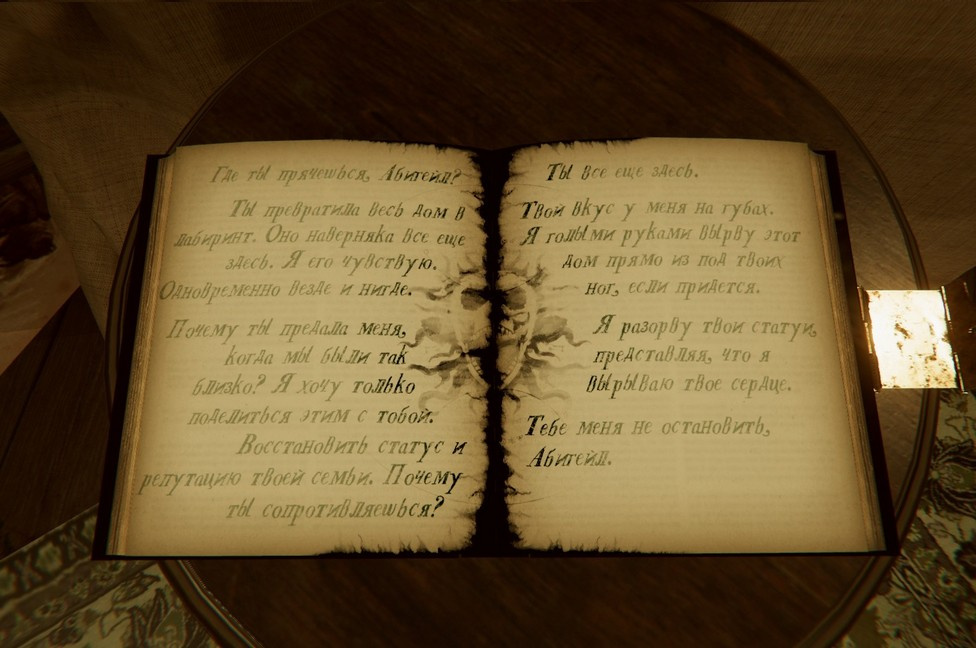 Где ты прячешься, Абигейл?
Ты превратила весь дом в
лабиринт. Оно наверняка все еще
здесь. Я его чувствую.
Одновременно везде и нигде.
Почему ты предала меня,
когда мы были так
близко? Я хочу только
поделиться этим с тобой.
Восстановить статус и
репутацию твоей семьи. Почему
ты сопротивляешься?
Ты все еще здесь.
Твой вкус у меня на губах.
Я голыми руками вырву этот
дом прямо из под твоих
ног, если придется.
Я разорву твои статуи,
представляя, что я
вырываю твое сердце.
Тебе меня не остановить,
Абигейл.